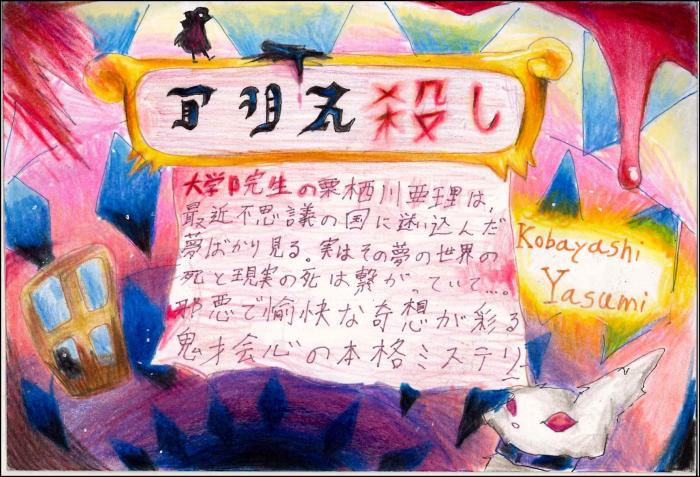 アリス殺し
大学院生の栗栖川亜理は、
最近不思議の国に迷い込んだ
夢ばかり見る。実はその夢の世界の
死と現実の死は繋がっていて…。
邪悪で愉快な奇想が彩る
鬼才会心の本格ミステリ
Kobayashi
Yasumi